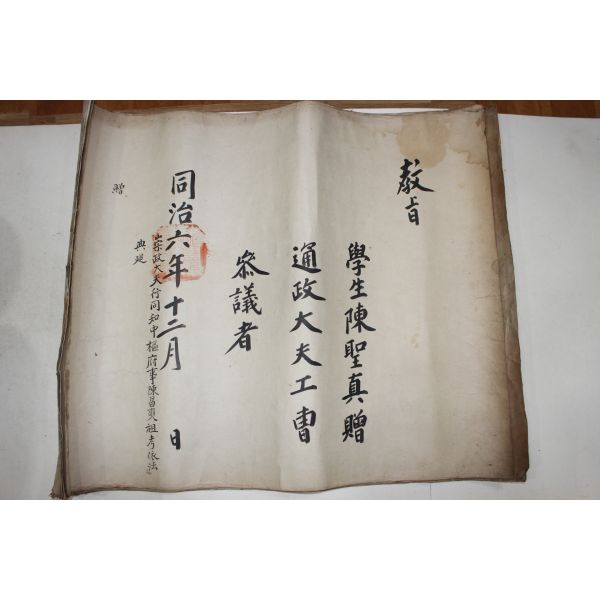 教旨
學生陳聖真贈
通政大夫工曺
參議者
同治六年十二月 日
嘉善大夫行同知中樞府事陳昌奭祖考依法
典追
贈